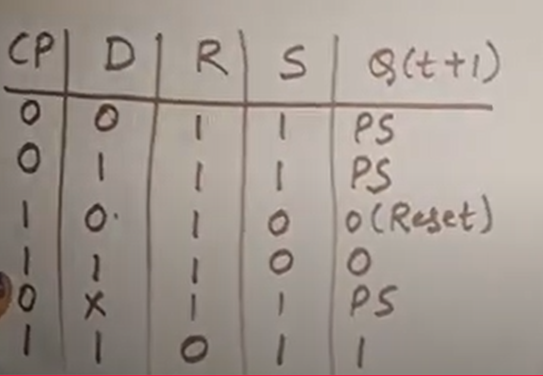 CP D R S Q(t+1)
0 0 1 1 PS
0 1 1 1 PS
1 0 1 0 0(Reset)
1 1 1 0 0
0 X 1 1 PS
1 1 0 1 1